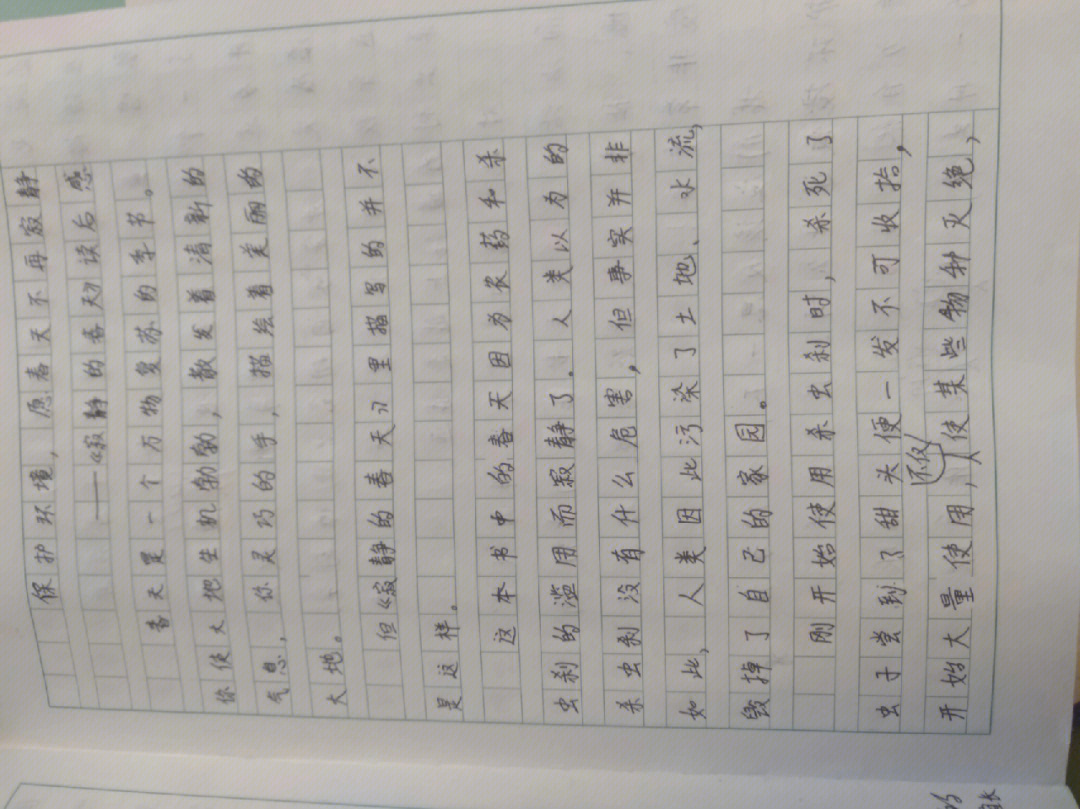 保护环境，愿春天不再寂静
——《寂静的春天》读后感
春天是一个万物复苏的季节。
你使大地生机勃勃，散发着清新的
气息，你灵巧的手，描绘着美丽的
大地。
但《寂静的春天》里描写的并不
是这样。
这本书中的春天因为农药和杀
虫剂的滥用而寂静了。人类以为的
杀虫剂没有什么危害，但事实并非
如此，人类因此污染了土地、水流，
毁掉了自己的家园。
刚开始使用杀虫剂时，杀死了
虫子尝到了甜头便一发不可收拾，
开始大量使用，不仅使某些物种灭绝，